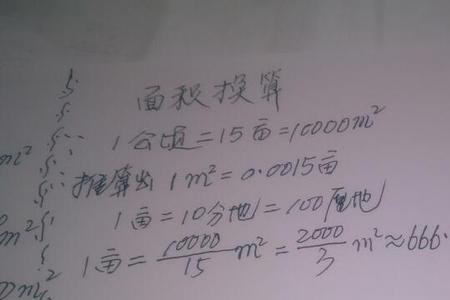 面积换算
1公顷=15亩=10000m²
m² 推算出 1m²=0.0015亩
m² 1亩=10分地=100厘地
1亩=10000/15 m²=2000/3 m²≈666.